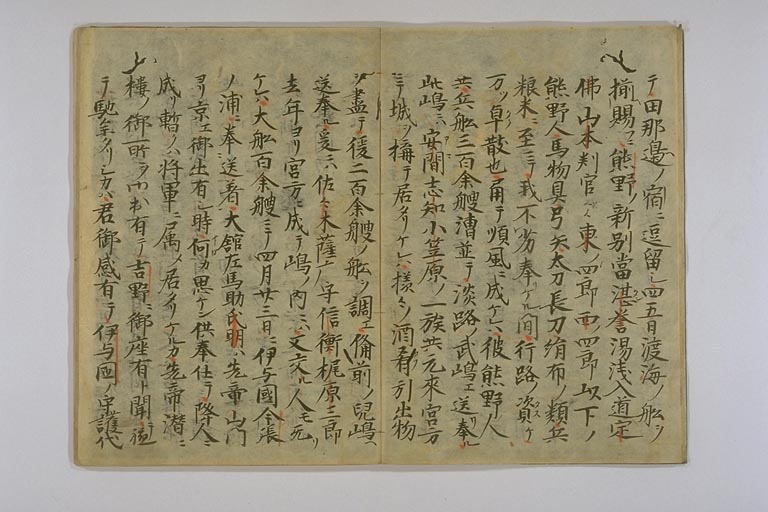 テ田那邊ノ宿ニ逗留シ四五日渡海ノ舩ヲ
揃賜フニ熊野ノ新別當湛誉湯浅入道定
佛山本判官東ノ四郎西ノ四郎以下ノ
熊野人馬物具弓矢太刀長刀絹布ノ類兵
粮米ニ至ニテ我不劣奉ケル間行路ノ資ケ
万ツ卓散也角テ順風ニ成ケレハ彼熊野人
共兵舩三百余艘漕並テ淡路武嶋エ送奉ル
此嶋ニハ安間志知小笠原ノ一族共元來宮方
ニテ城ヲ構テ居タリケレハ様々ノ酒肴引出物
ヲ盡テ後二百余艘ノ舩ヲ調エ備前ノ児嶋ヘ
送奉ル爰ニハ佐々木薩广守信衡梶原三郎
去年ヨリ宮方ニ成テ嶋ノ内ニハ又交ル人モ无リ
ケレハ大舩百余艘ニテ四月廿三日ニ伊与國今張
ノ浦ニ奉送着大舘左馬助氏明ハ先帝山門
ヨリ京エ御出有シ時何カ思ケン供奉仕テ降人ニ
成リ暫クハ将軍ニ属メ居タリケルカ先帝潜ニ
樓ノ御所ヲ御出有テ吉野ニ御座有ト聞テ
テ馳参タリシカハ君御感有テ伊与國ノ守護代